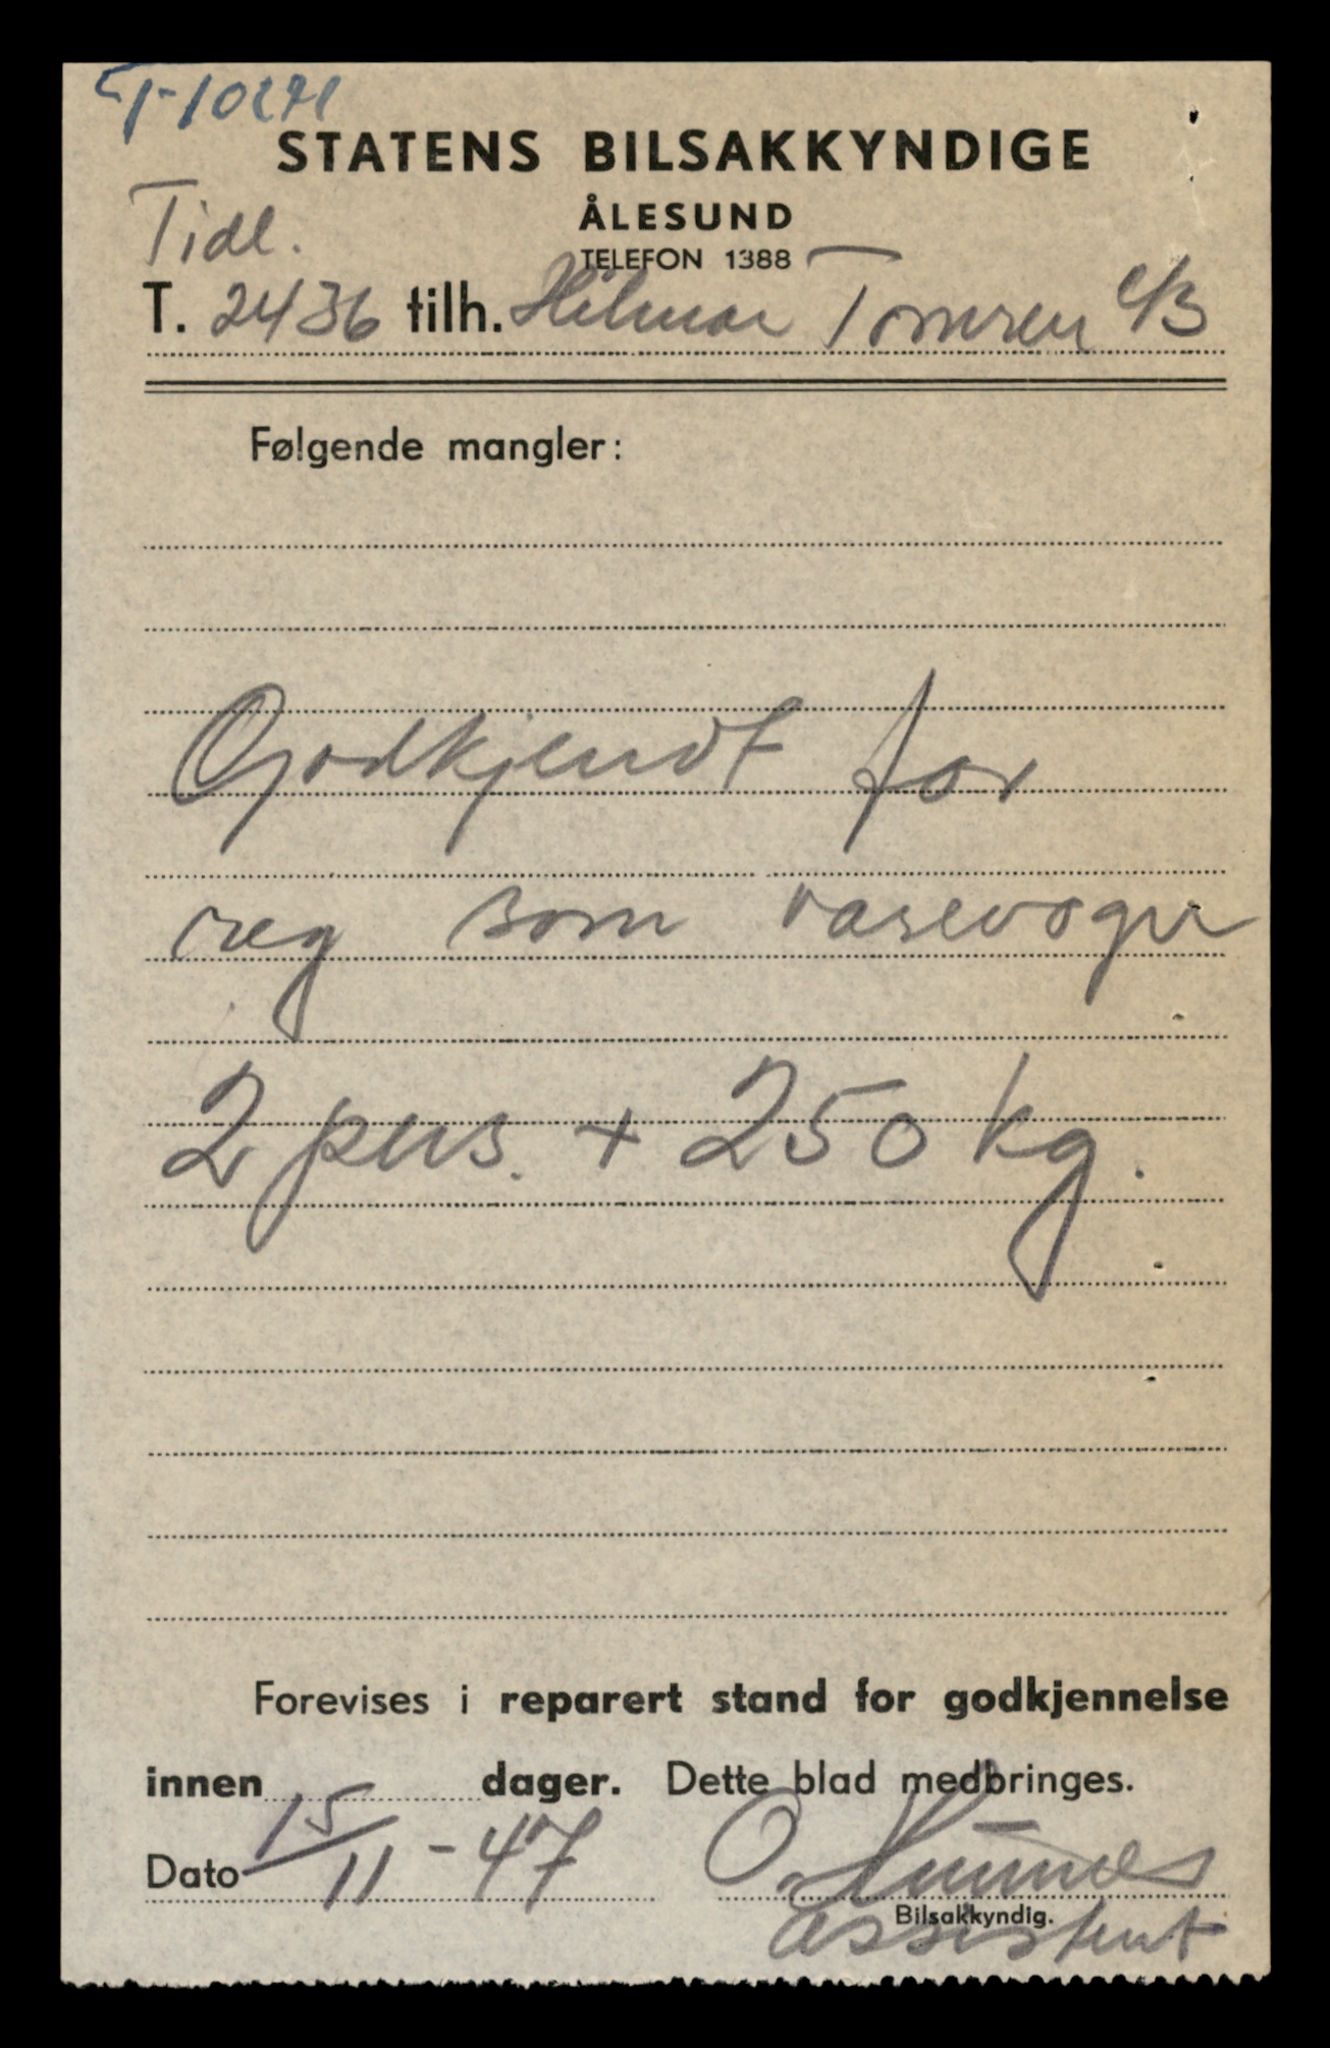 T-10291
STATENS BILSAKKYNDIGE
ÅLESUND
Tidl.
TELEFON 1388
T. 2436 tilh. Hilmar Tomren
Følgende mangler:
Godkjendt for
reg som varevogn
2 pers. + 250 kg.
Forevises i reparert stand for godkjennelse
innen dager. Dette blad medbringes.
Dato 15/11-47 O.
Bilsakkyndig.
assistent